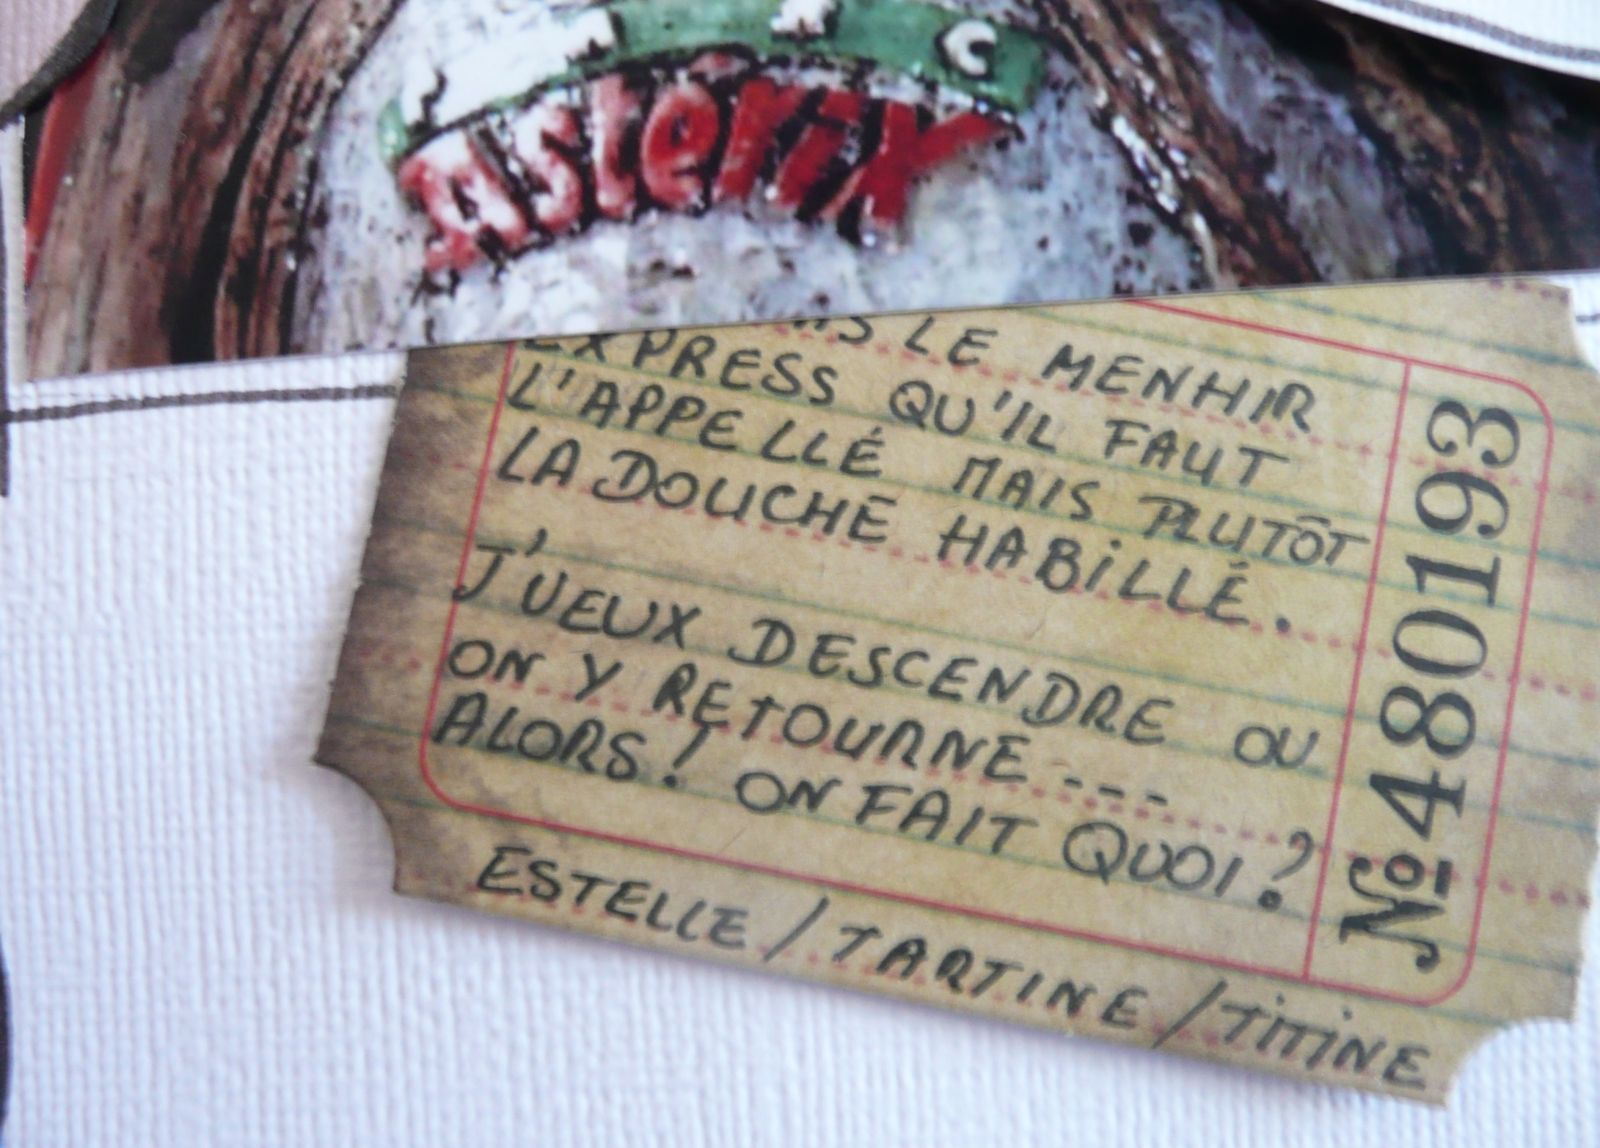 Astérix
LE MENHIR
EXPRESS QU'IL FAUT
L'APPELLÉ MAIS PLUTÔT
LA DOUCHE HABILLÉ.
J'VEUX DESCENDRE OU
ON Y RETOURNE...
ALORS! ON FAIT QUOI?
ESTELLE / TARTINE / TITINE
№480193